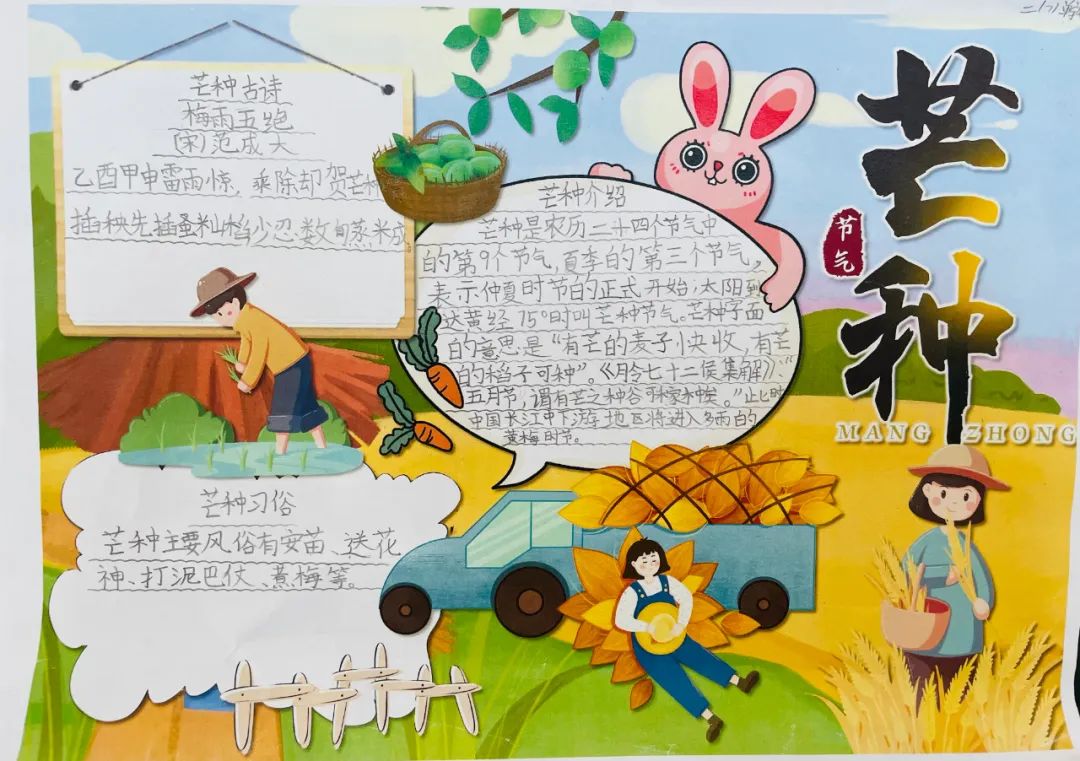 芒种古诗
梅雨五绝
(宋)范成大
乙酉甲申雷雨惊,乘除却贺芒种
插秧先插蚤籼稻少忍数旬蒸米成
芒种介绍
芒种是农历二十四个节气中
的第9个节气,夏季的第三个节气,
表示仲夏时节的正式开始;太阳到
达黄经75°时叫芒种节气。芒种字面
的意思是“有芒的麦子快收,有芒
的稻子可种”。《月令七十二候集解》:“
五月节,谓有芒之种谷可稼种矣。”此时
中国长江中下游地区将进入多雨的
黄梅时节。
芒种
节气
MANG ZHONG
芒种习俗
芒种主要风俗有安苗、送花
神、打泥巴仗、煮梅等。